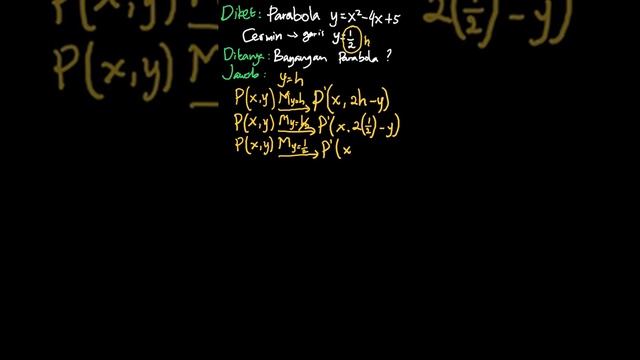 Diket: Parabola y=x²-4x+5
Cermin → garis y=1/2 h
Ditanya: Bayangan Parabola ?
Jawab: y=h
P(x,y) M y=h → P'(x, 2h-y)
P(x,y) M y=1/2 → P'(x, 2(1/2)-y)
P(x,y) M y=1/2 → P'(x
P(x,y)
2(1/2)-y)